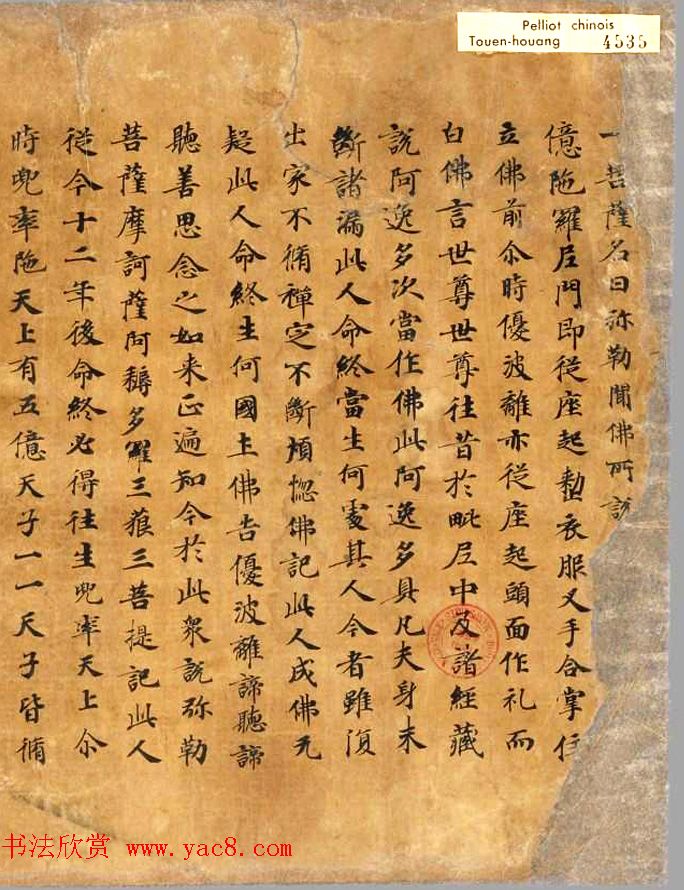 Pelliot chinois
Touen-houang 4535
一菩薩名曰弥勒聞佛所說
億陁羅尼門即從座起整衣服叉手合掌住
立佛前尒時優波離亦從座起頭面作礼而
白佛言世尊世尊往昔於毗尼中及諸經藏
說阿逸多次當作佛此阿逸多具凡夫身未
斷諸漏此人命終當生何處其人今者雖復
出家不脩禪定不斷煩惚佛記此人成佛无
疑此人命終生何國土佛告優波離諦聽諦
聽善思念之如来正遍知今於此衆說弥勒
菩薩摩訶薩阿耨多羅三藐三菩提記此人
從今十二年後命終必得往生兜率天上尒
時兜率陁天上有五億天子一一天子皆脩
书法欣赏 www.yac8.com